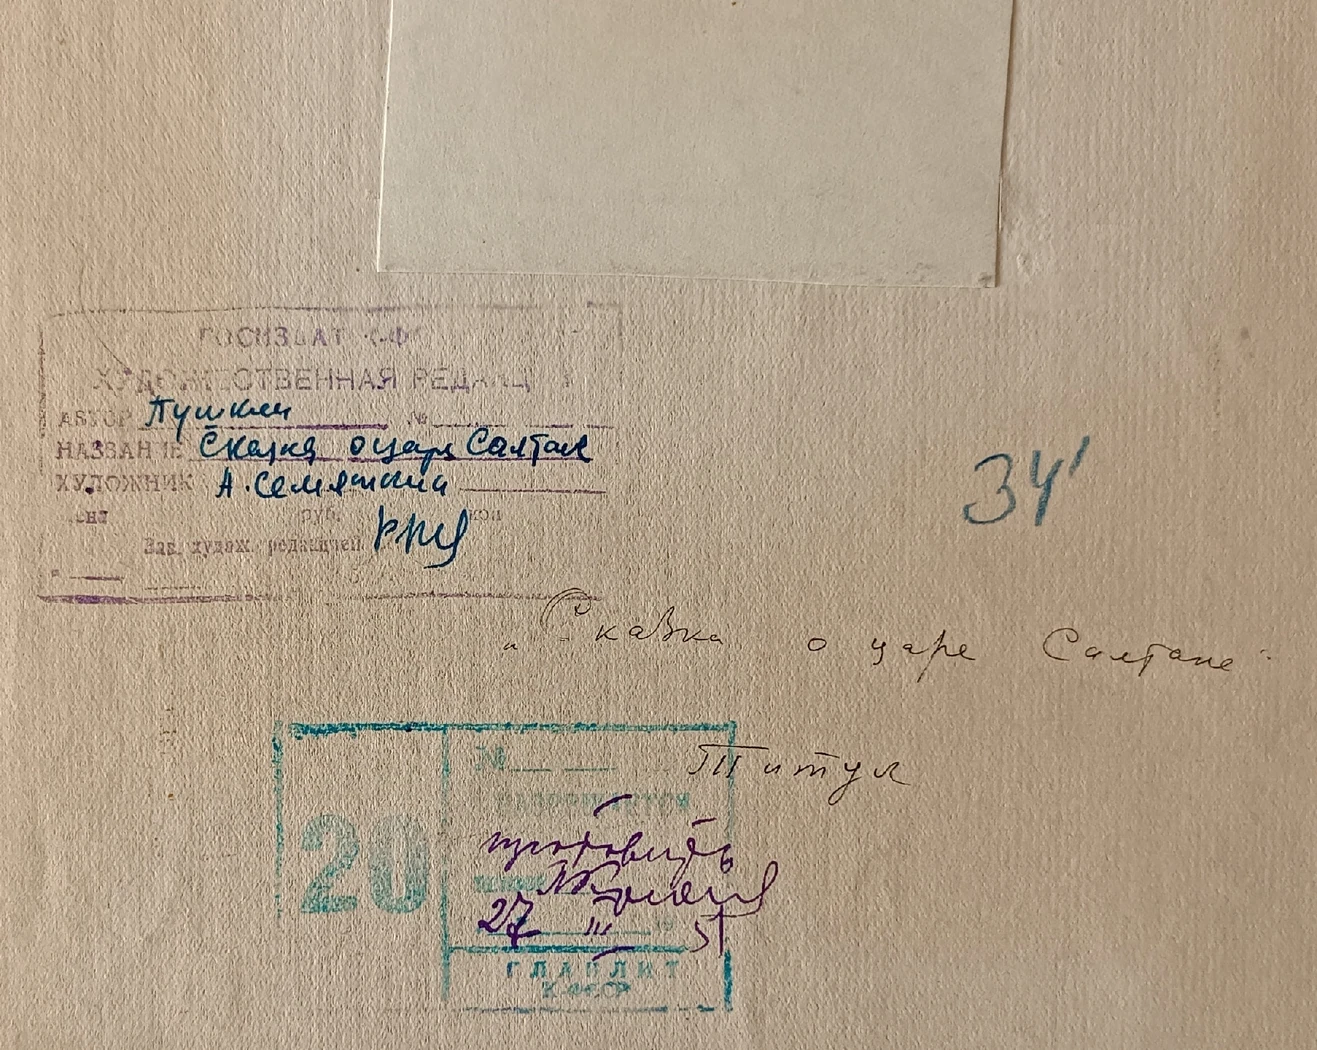 ГОСИЗДАТ К-ФССР
ХУДОЖЕСТВЕННАЯ РЕДАКЦИЯ
АВТОР Пушкин №
НАЗВАНИЕ Сказка о царе Салтане
ХУДОЖНИК А. Семяшкин
Цена руб. коп
Зав. худож. редакцией
34'
„Сказка о царе Салтане"
Титул
20
№
27 III 51
ГЛАВЛИТ
К-ФССР